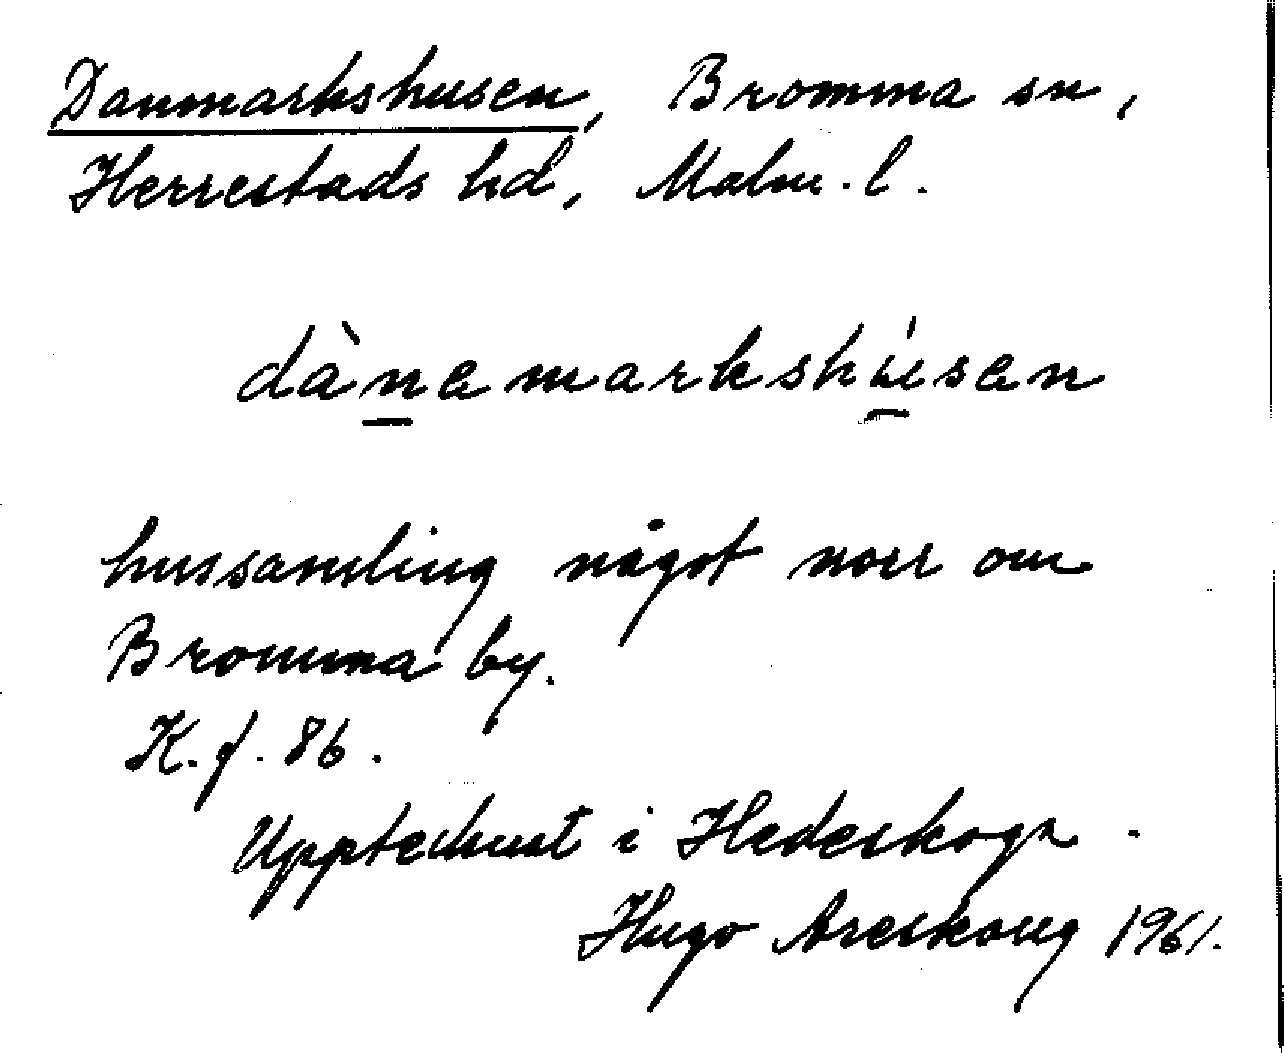 Danmarkshusen, Bromma sn,
Herrestads hd, Malm. l.
dànemarkshúsen
hussamling något norr om
Bromma by.
K. f. 86.
Upptecknat i Hedeskoga.
Hugo Areskoug 1961.